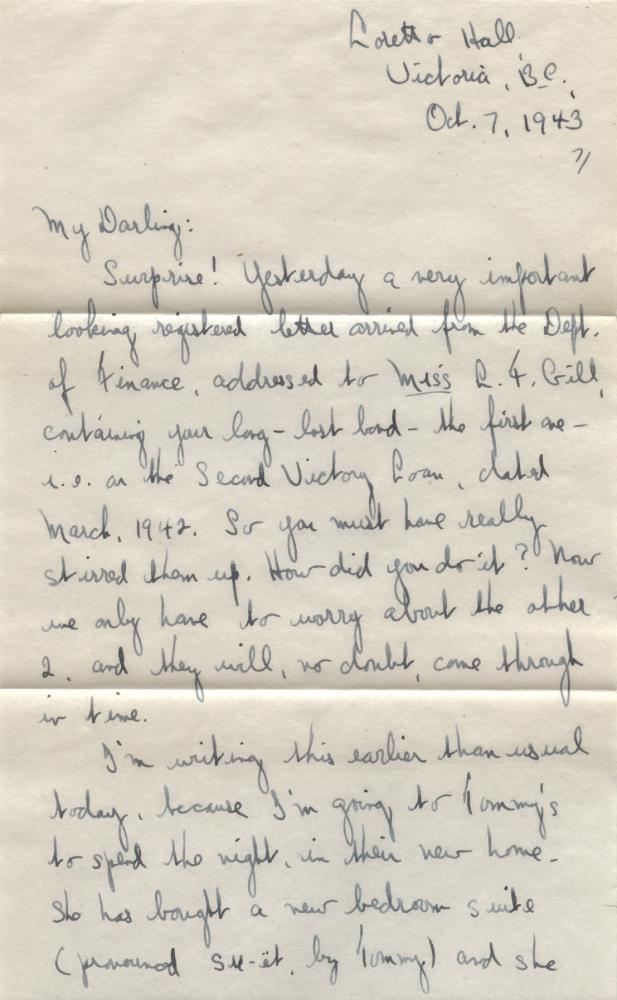 Loretto Hall,
Victoria, B.C.,
Oct. 7, 1943
My Darling:
Surprise! Yesterday a very important
looking registered letter arrived from the Dept.
of Finance, addressed to Miss L. F. Gill,
containing your long-lost bond - the first one -
i.e. on the Second Victory Loan, dated
March, 1942. So you must have really
stirred them up. How did you do it? Now
we only have to worry about the other
2, and they will, no doubt, come through
in time.
I'm writing this earlier than usual
today, because I'm going to Tommy's
to spend the night, in their new home.
She has bought a new bedroom suite
(pronounced su-ët, by Tommy) and she